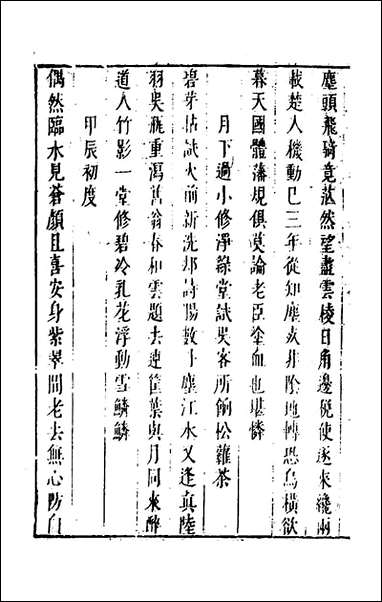 塵頭飛騎竟茫然望盡雲稜日角邊縱使逐來纔兩
載楚人機動已三年從知塵劫非陰地轉恐烏橫欲
暮天國體藩規俱莫論老臣塗血也堪憐
月下過小修淨綠堂試吳客所餉松蘿茶
碧芽拈試火前新洗却詩腸數斗塵江水又逢真陸
羽吳瓶重瀉舊翁春和雲題去連筐葉與月同來醉
道人竹影一堂修碧冷乳花浮動雪鱗鱗
甲辰初度
偶然臨水見蒼顏且喜安身紫翠間老去無心防白